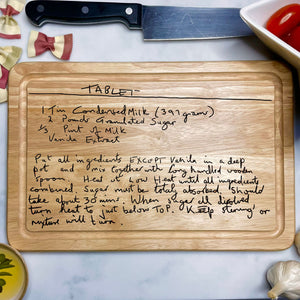 TABLET
1 Tin Condensed Milk (397 gram)
2 Pounds Granulated Sugar
1/3 Pint of Milk
Vanilla Extract
Put all ingredients EXCEPT Vanilla in a deep
pot and mix together with long handled wooden
spoon. Heat at Low Heat until all ingredients
combined. Sugar must be totally absorbed. Should
take about 30 mins. When sugar all dissolved
turn heat to just below TOP. Keep stirring or
mixture will burn.